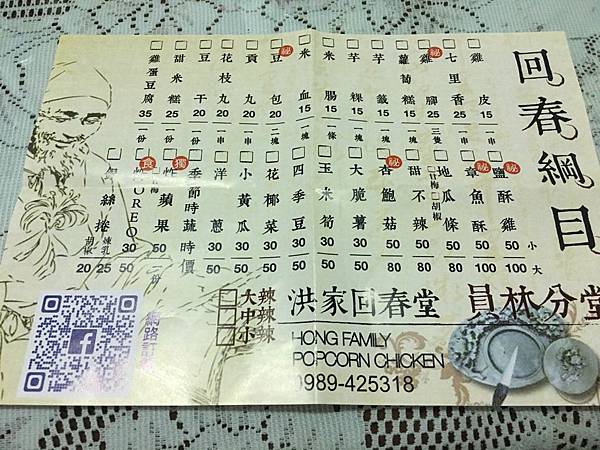 回春綱目
雞皮 15 一串
七里香 25 一串
秘 雞腳 25 三隻
蘿蔔糕 15 一塊
芋籤 15 一塊
芋粿 15 一塊
米腸 15 一條
米血 15 一塊
秘 豆包 20 二塊
貢丸 20 一串
花枝丸 20 一串
豆干 20 一份
甜米糕 25 一份
雞蛋豆腐 35 一份
小 大
秘 鹽酥雞 50 100
章魚酥 50 100
地瓜條 甘梅 胡椒 50
甜不辣 50 80
秘 杏鮑菇 50 80
大脆薯 30 50
玉米筍 30 50
四季豆 30 50
花椰菜 30 50
小黃瓜 30 50
洋蔥 30 50
季節時蔬 時價
獨 炸蘋果 50 一份
食 炸OREO 50
銀絲捲 煉乳 25 胡椒 20
大辣
中辣
小辣
洪家回春堂 員林分堂
HONG FAMILY
POPCORN CHICKEN
0989-425318
網路訂